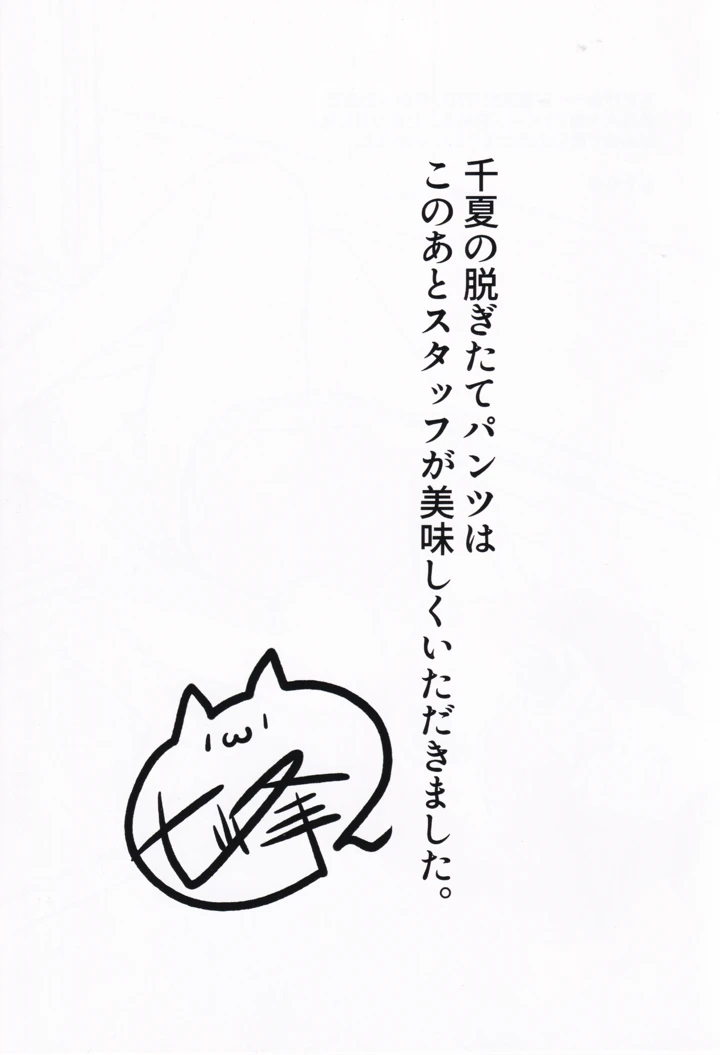 千夏の脱ぎたてパンツは
このあとスタッフが美味しくいただきました。
七峰